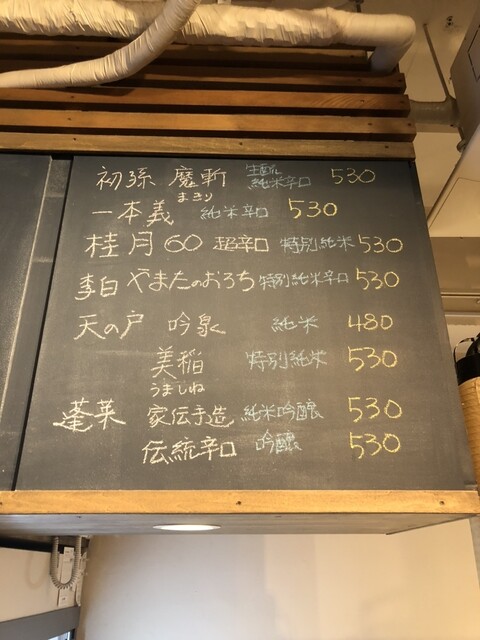 初孫 魔斬 生酛 純米辛口 530
まきり
一本義 純米辛口 530
桂月60 超辛口 特別純米 530
李白 やまたのおろち 特別純米辛口 530
天の戸 吟泉 純米 480
美稲 特別純米 530
うましね
蓬莱 家伝手造 純米吟醸 530
伝統辛口 吟醸 530